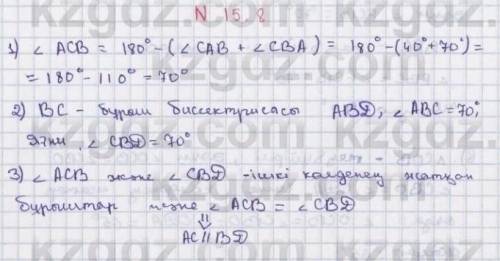 N 15.8
1) ∠ ACB = 180° - (∠ CAB + ∠ CBA) = 180° - (40° + 70°) =
= 180° - 110° = 70°
2) BC - бұрыш биссектрисасы ABD, ∠ ABC = 70°,
Яғни, ∠ CBD = 70°
3) ∠ ACB және ∠ CBD - ішкі көлденең жатқан
бұрыштар және ∠ ACB = ∠ CBD
⇓
AC || BD
kzgdz.com